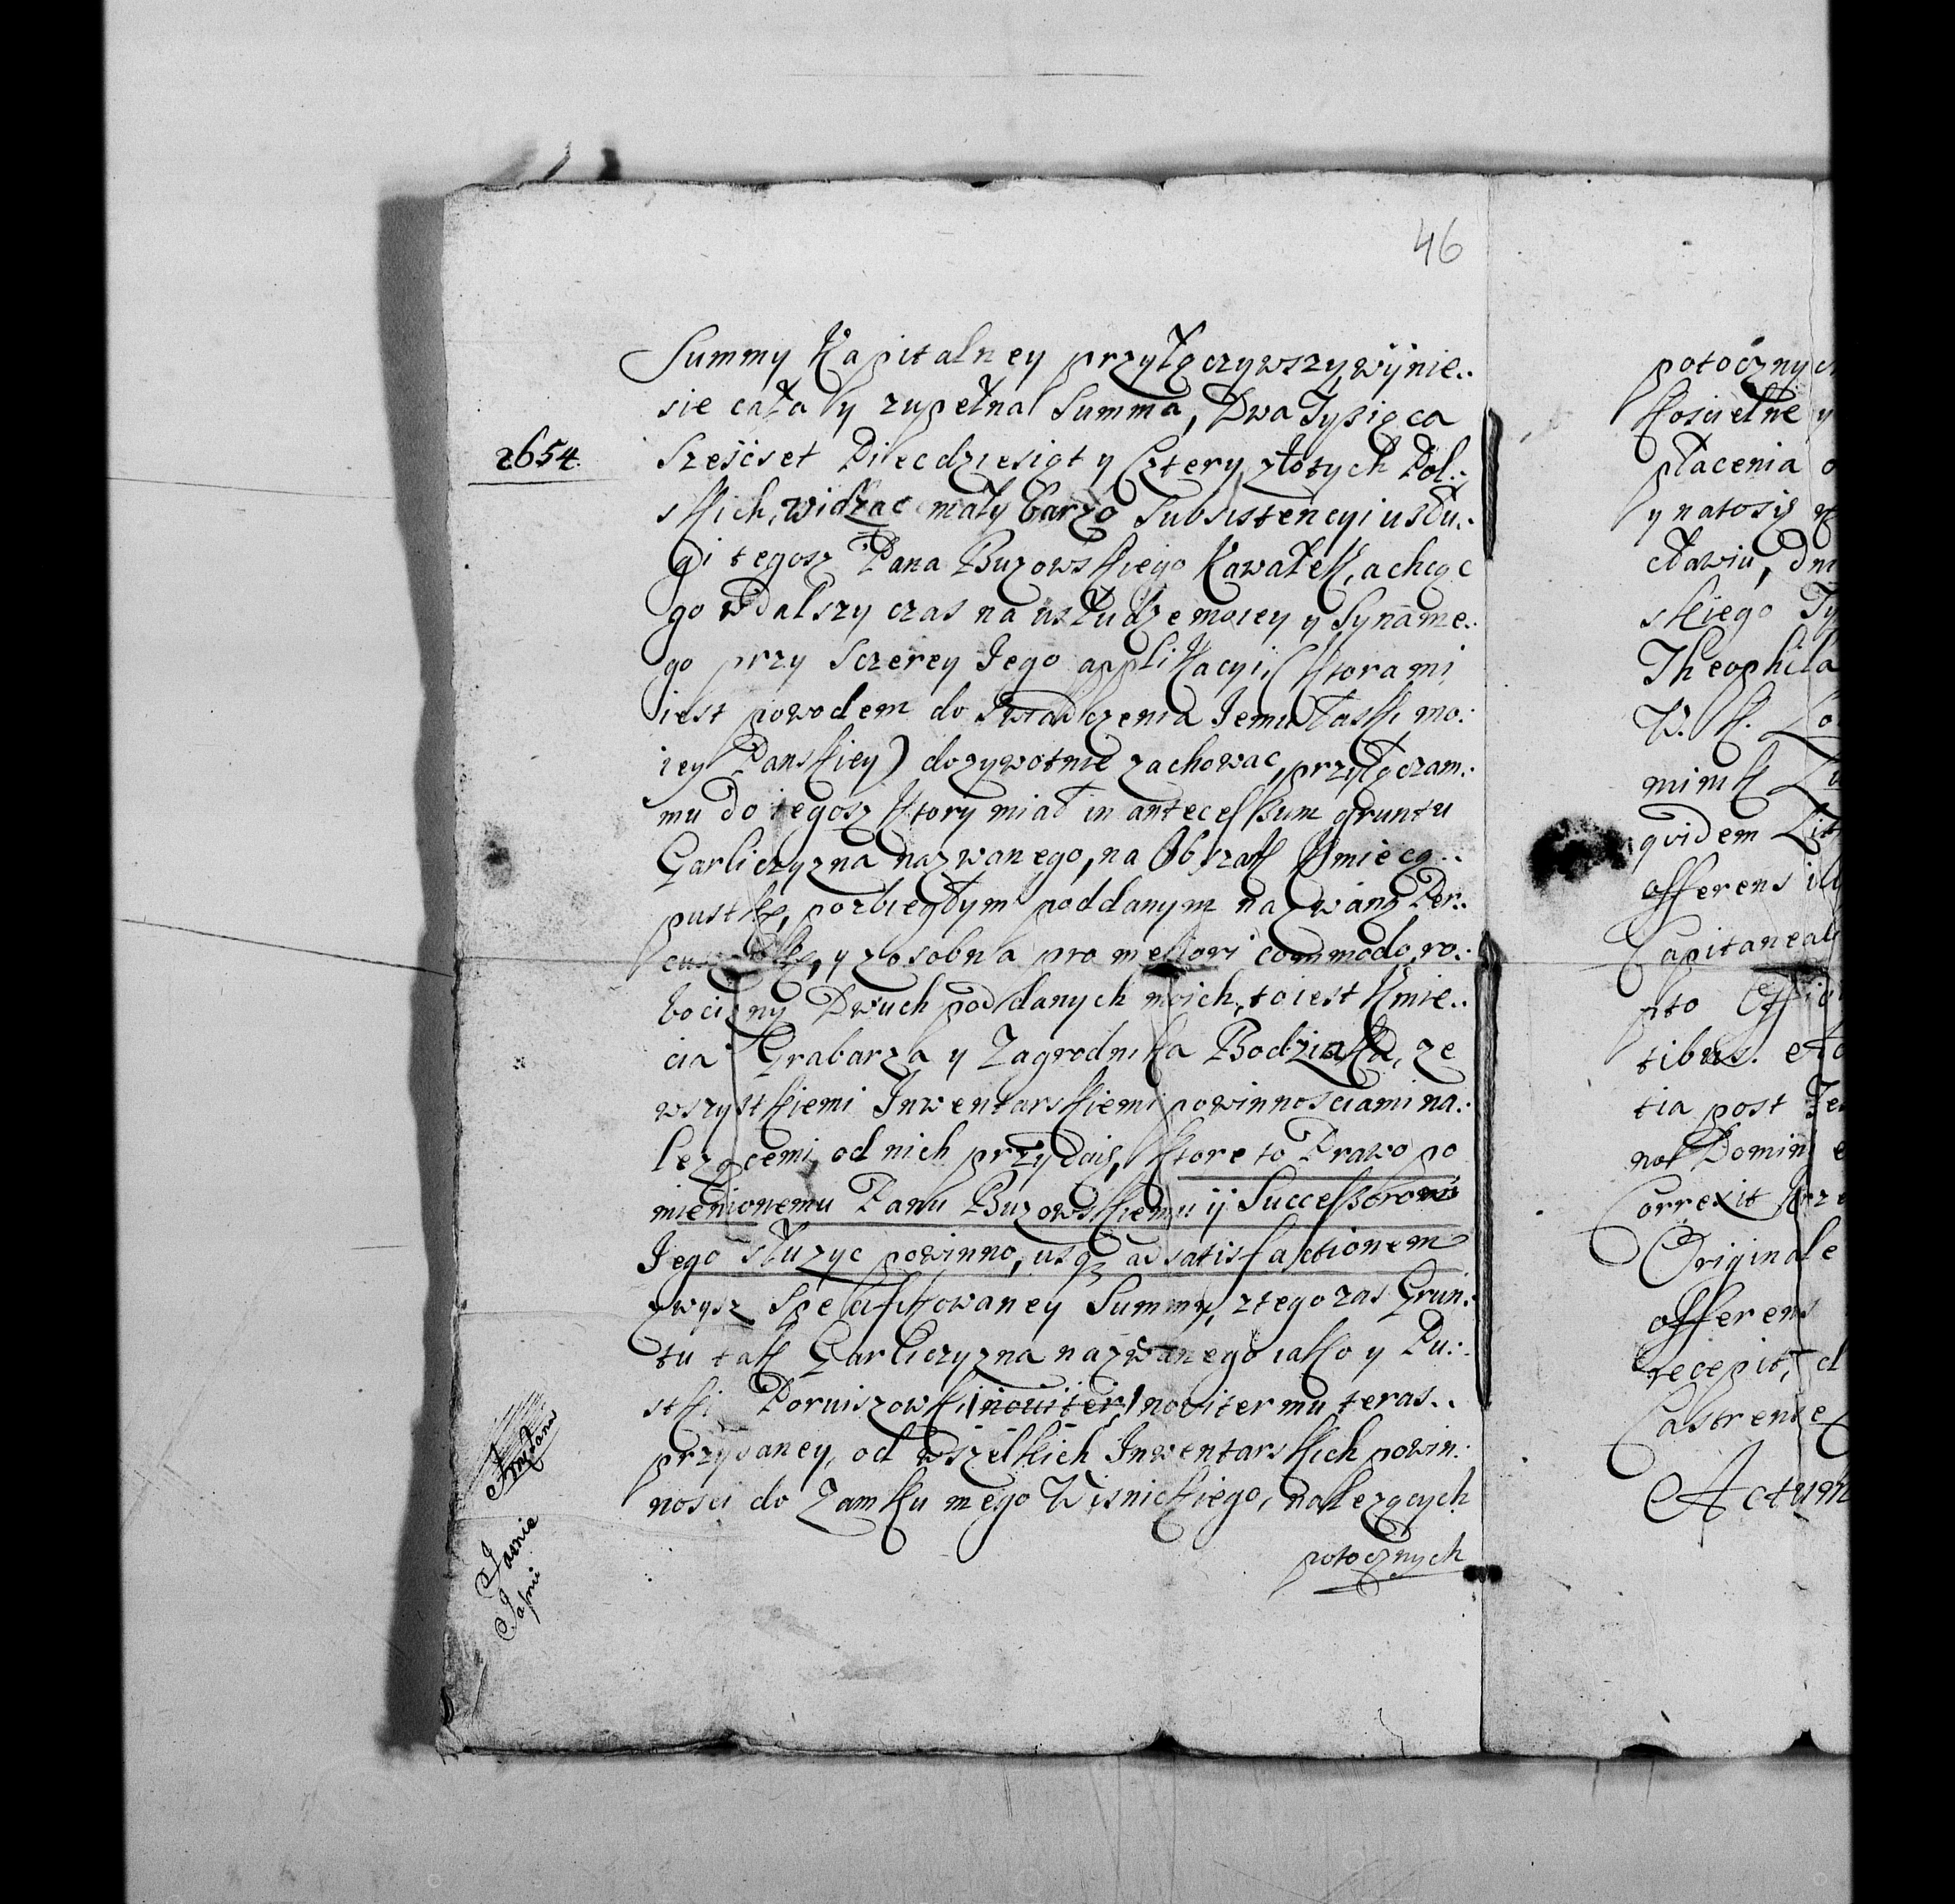 46
Summy Kapitalney przyłączywszy wÿnie..
sie cała y zupełna Summa, Dwa Tysiąca
2654.
Sześćset Piiecdziesiąt y Cztery złotych Pol.:
skich, widząc mały barzo Subsistencyi usłu..
gi tegosz Pana Buzowskiego Kawałek, a chcąc
go w dalszy czas na usłudze moiey y Syna me..
go przy Sczerey Jego applikacyi, (ktora mi
iest powodem do Swiadczenia Jemu łaski mo:
iey Panskiey) dozywotnie zachowac, przyłączam.:
mu do tegosz ktory miał in antecessum gruntu
Garliczyzna nazwanego, na Obszak Kmiecą..
pustkę, pozbiegłym poddanym nazwaną Per..
y zosobna pro meliori commodo, ro.:
bocizny Dwuch poddanych moich, to iest Kmie..
cia Grabarza y Zagrodnika Bodziaka, ze
wszystkiemi Inwentarskiemi powinnosciami na.:
lezącemi od nich przydaię, ktore to Prawo po
mienionemu Panu Buzowskiemu ÿ Successorowi
Jego słuzyc powinno, usq, ad satisfactionem
zwysz Specifikowaney Summy, z tego zas Grun:
tu tak Garliczyzna nazwanego iako y Pu:
stki Poruiszowski noviter noviter mu teras..
przydaney, od wszelkich Inwentarskich powin:
nosci do Zamku mego Wisnickiego, nalezących
potocznych
Jasnie
Jasnie
potocznych
Koscielne y
płacenia
y na to się
cławiu, dni
skiego
Theophila
W. K.
mink
qvidem
offerens
Capitaneali
tibus.
tia post
not Domini
Correxit
Originale
offerens
recepit,
Castrense
Actum